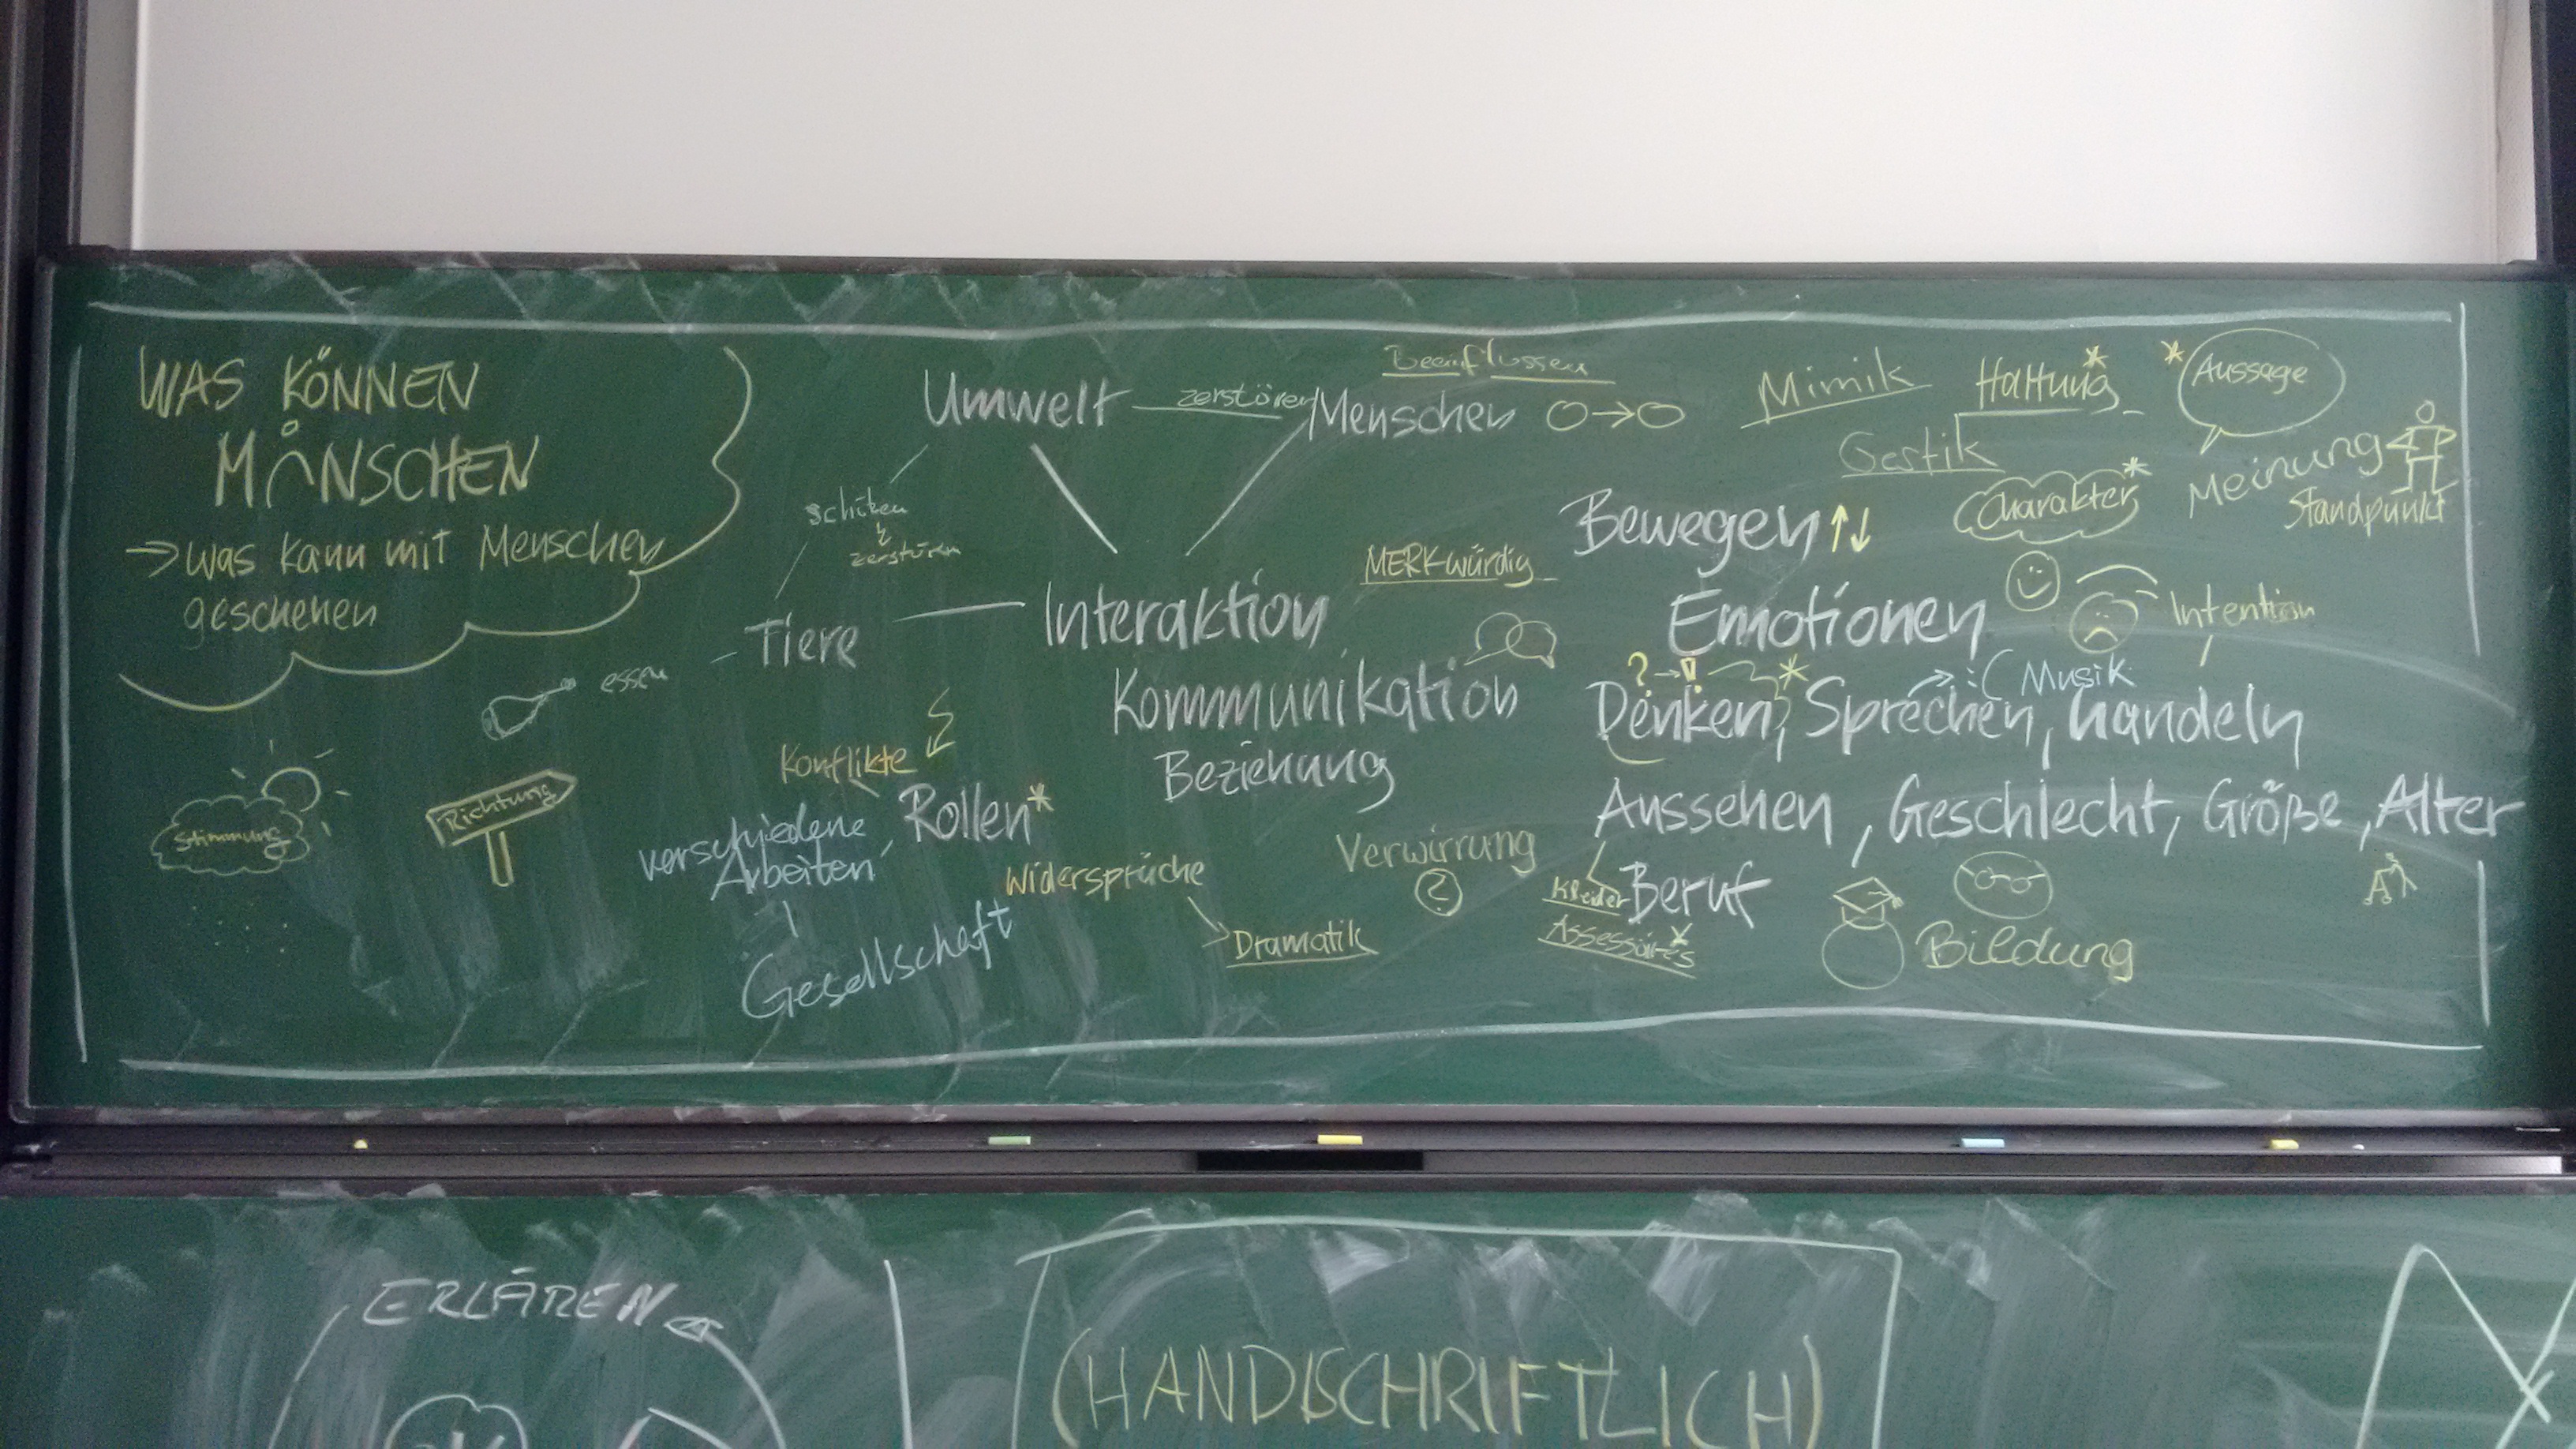 WAS KÖNNEN
MENSCHEN
→ was kann mit Menschen
geschehen
Umwelt
zerstören
Menschen
Beeinflussen
Mimik
Haltung*
* Aussage
Gestik
Meinung
Standpunkt
Charakter*
Schützen
zerstören
Bewegen ↑↓
MERKwürdig
Tiere
Interaktion
Emotionen
Intention
essen
Kommunikation
? → !
*
→ :( Musik
Denken, Sprechen, handeln
Konflikte
Beziehung
Stimmung
Richtung
Rollen*
verschiedene
Arbeiten
Aussehen, Geschlecht, Größe, Alter
Widersprüche
Verwirrung
?
Kleider
Beruf
Gesellschaft
Dramatik
Assessoires
Bildung
ERLÄREN
(HANDSCHRIFTLICH)